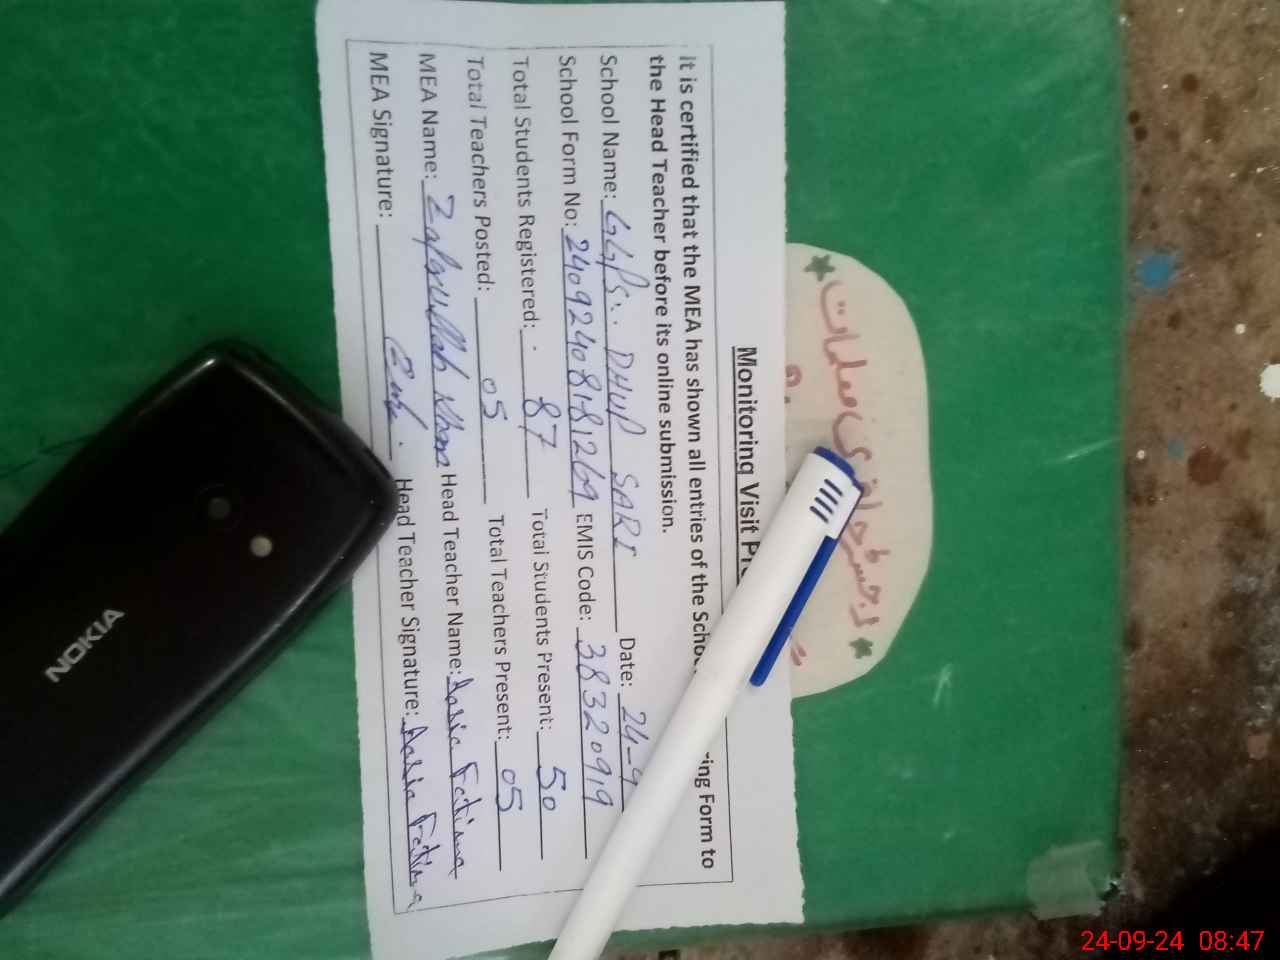 Monitoring Visit Pr
it is certified that the MEA has shown all entries of the Scho ring Form to
the Head Teacher before its online submission.
School Name: GGPS.. DHUP SARI Date: 24-9
School Form No: 24092408181269 EMIS Code: 38320919
Total Students Registered: 87 Total Students Present: 50
Total Teachers Posted: 05 Total Teachers Present: 05
MEA Name: Zafarullah Khan Head Teacher Name: Fatima
MEA Signature: Head Teacher Signature: Fatima
رجسٹر حاضری معلمات
NOKIA
24-09-24 08:47